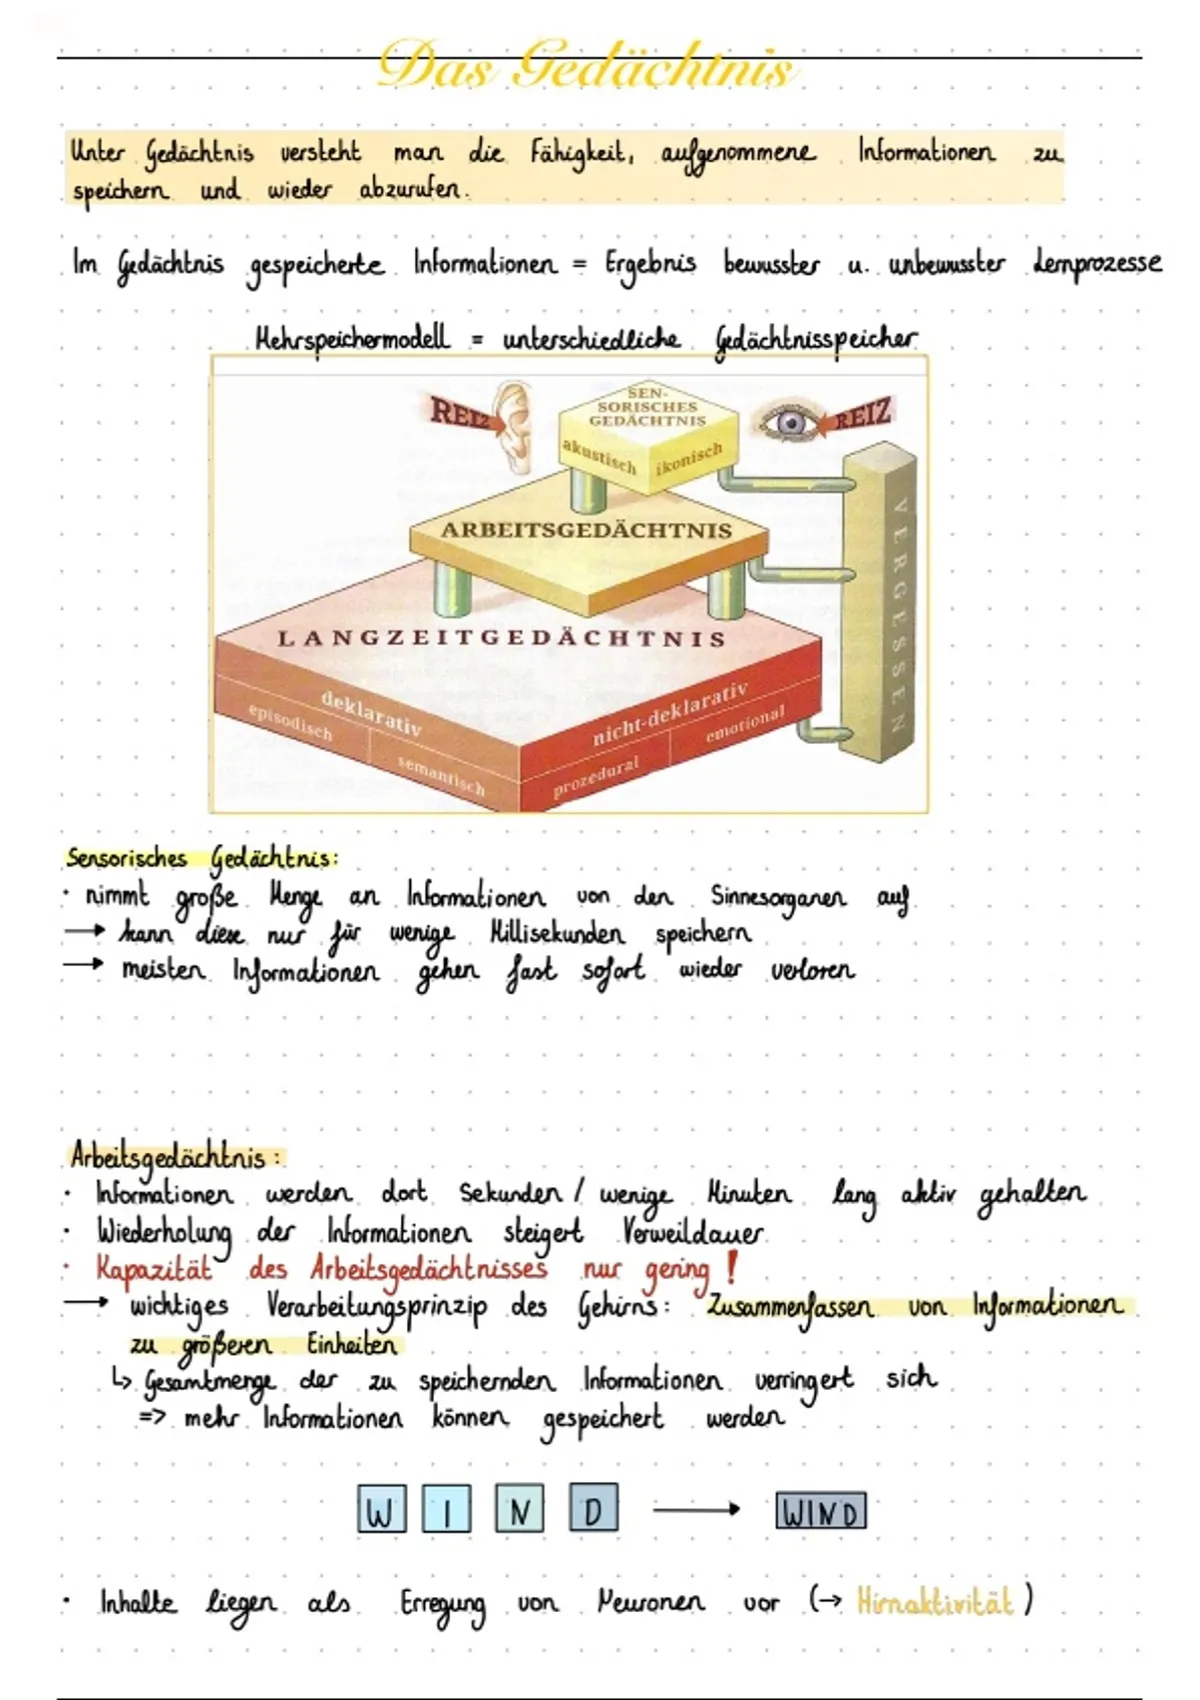 Das Gedächtnis
Unter Gedächtnis versteht man die Fähigkeit, aufgenommene Informationen zu
speichern und wieder abzurufen.
Im Gedächtnis gespeicherte Informationen = Ergebnis bewusster u. unbewusster Lernprozesse
Mehrspeichermodell = unterschiedliche Gedächtnisspeicher
REIZ
SEN-
SORISCHES
GEDÄCHTNIS
akustisch
ikonisch
REIZ
ARBEITSGEDÄCHTNIS
VERGESSEN
LANGZEITGEDÄCHTNIS
deklarativ
episodisch
semantisch
nicht-deklarativ
prozedural
emotional
Sensorisches Gedächtnis:
· nimmt große Menge an Informationen von den Sinnesorganen auf
→ kann diese nur für wenige Millisekunden speichern
→ meisten Informationen gehen fast sofort wieder verloren
Arbeitsgedächtnis:
· Informationen werden dort Sekunden / wenige Minuten lang aktiv gehalten
· Wiederholung der Informationen steigert Verweildauer
· Kapazität des Arbeitsgedächtnisses nur gering!
→ wichtiges Verarbeitungsprinzip des Gehirns: Zusammenfassen von Informationen
zu größeren Einheiten
↳ Gesamtmenge der zu speichernden Informationen verringert sich
=> mehr Informationen können gespeichert werden
W I N D → WIND
· Inhalte liegen als Erregung von Neuronen vor (→ Hirnaktivität)